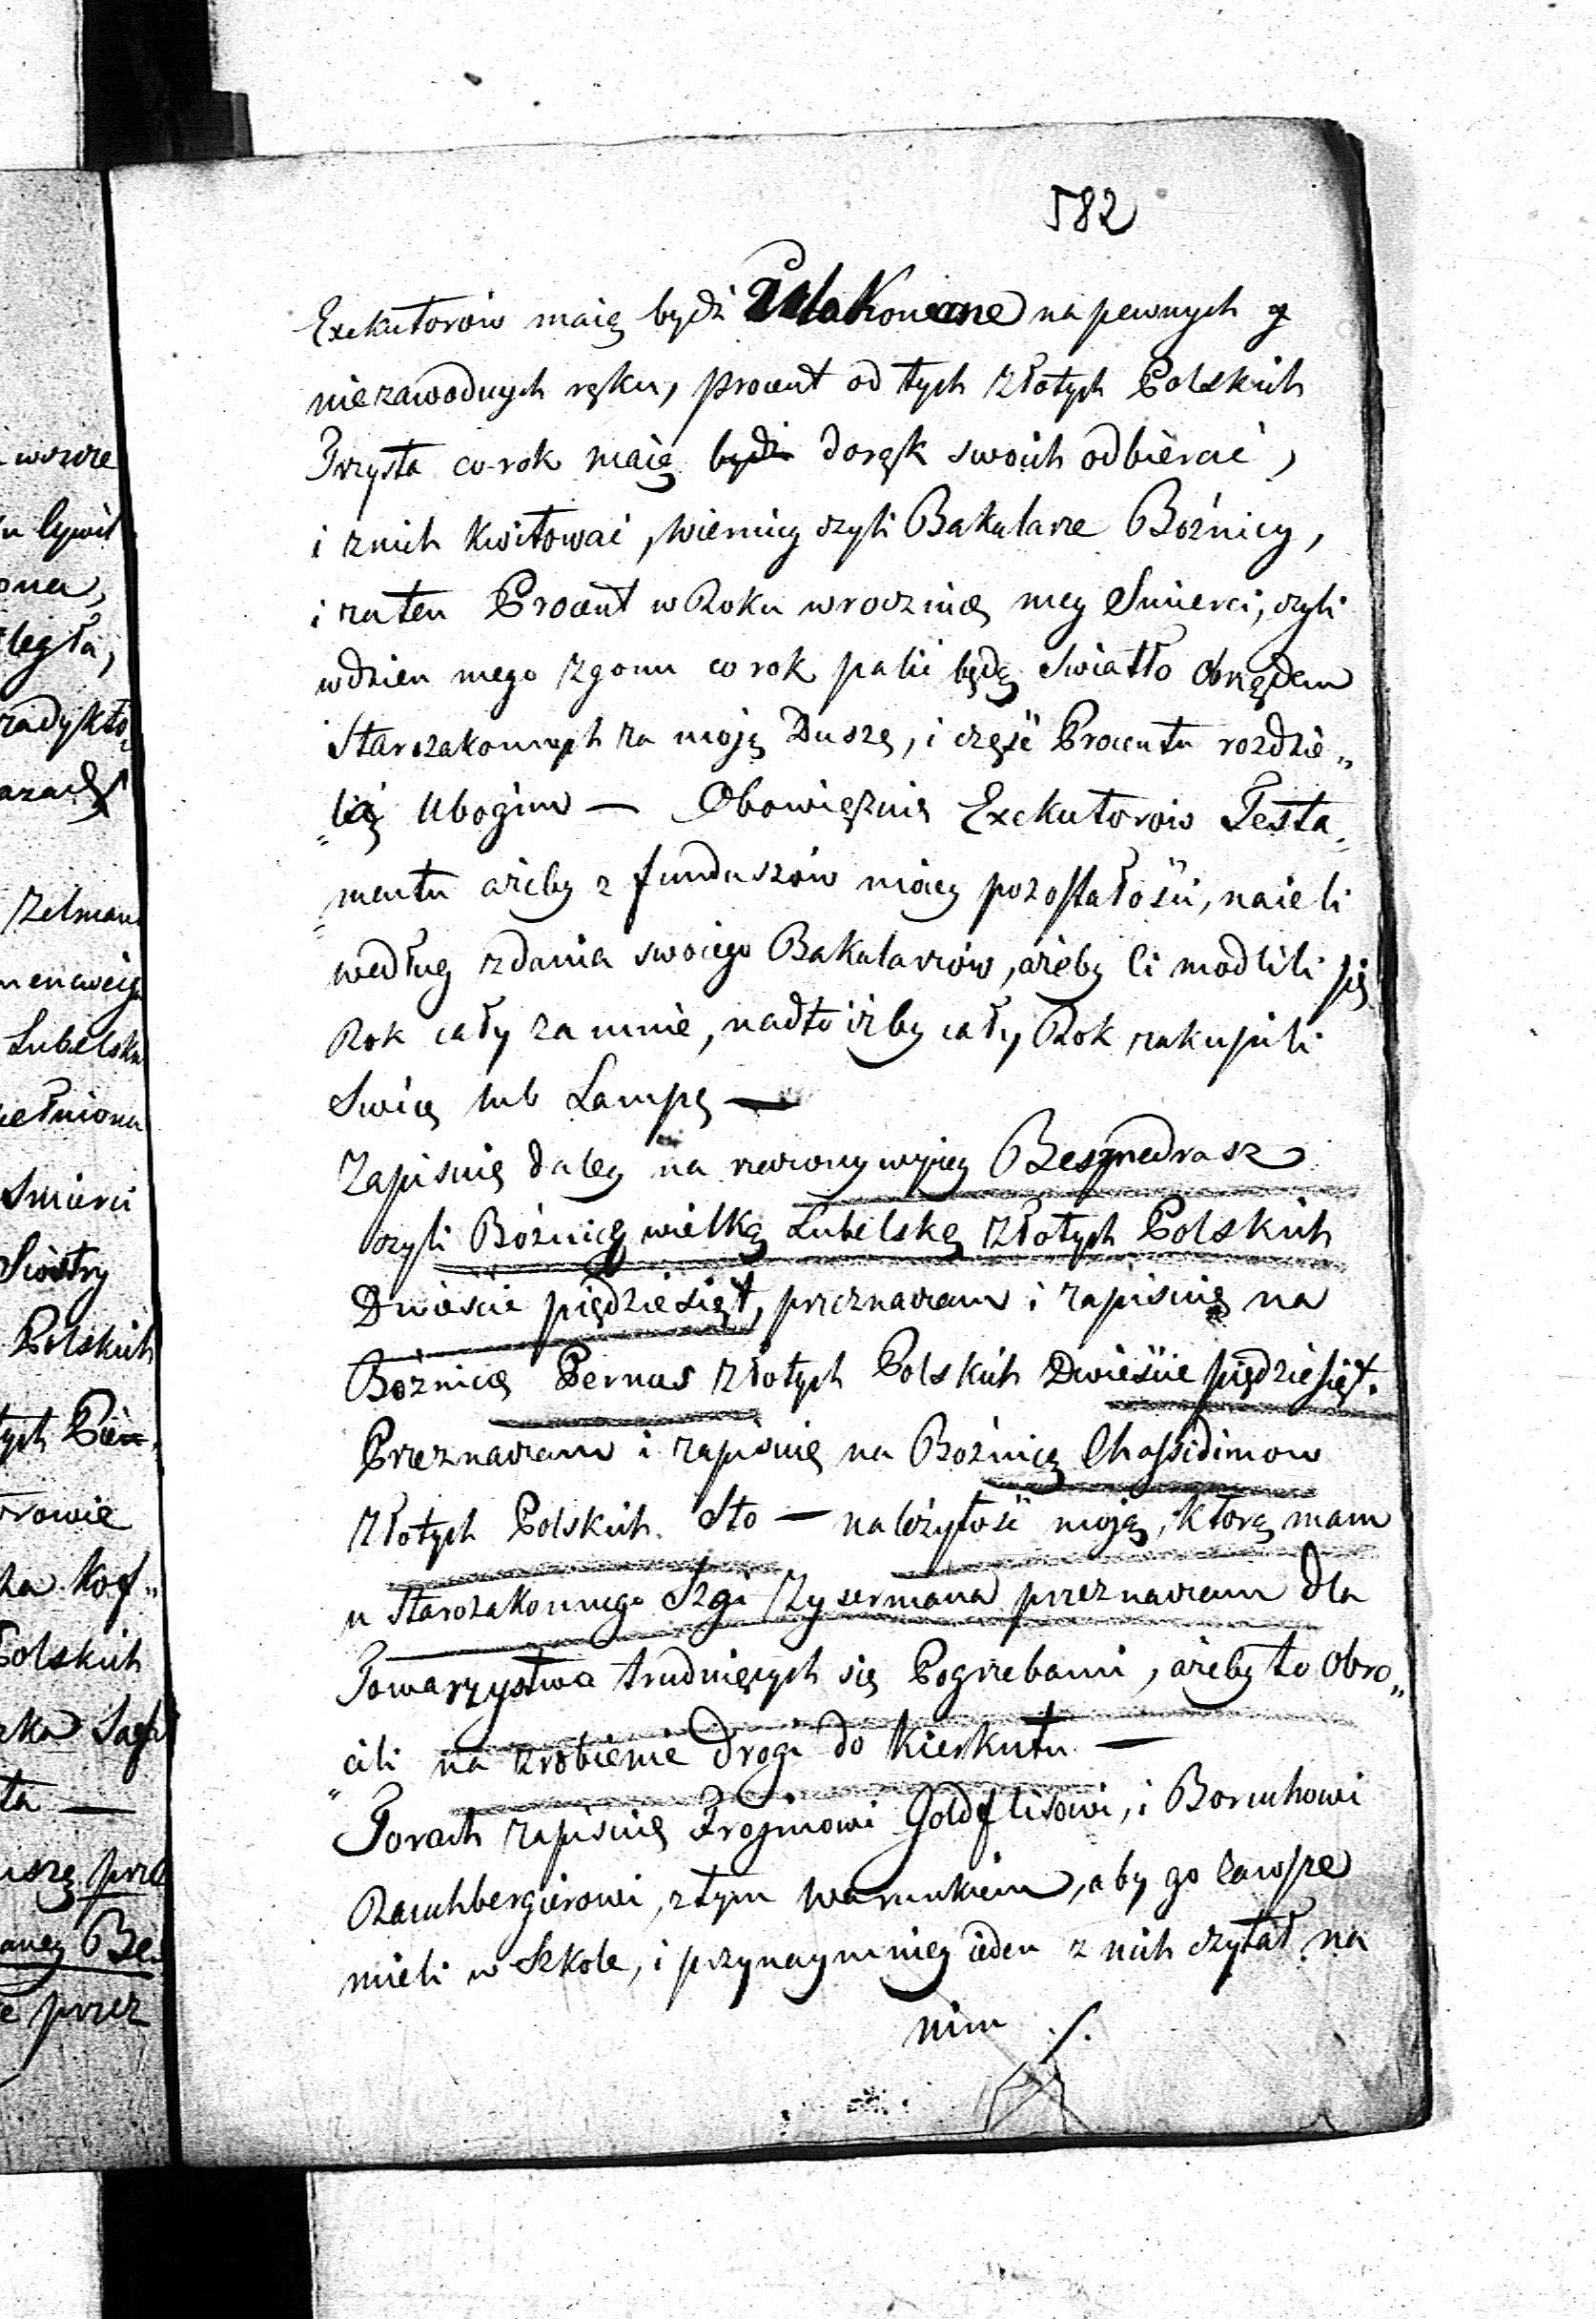 582
Exekutorów maią bydź ulokowane na pewnych y
niezawodnych ręku, procent od tych złotych Polskich
Trzysta co rok maią bydź do rąk swoich odbierać,
i z nich kwitować, wiernicy czyli Bakałarze Bóźnicy,
i za ten Procent w Roku w rocznicę mey Smierci, czyli
w dzien mego zgonu co rok palić będą Swiatło obrządem
Starozakonnych za moją Duszę, i część Procentu rozdzie„
„lą Ubogim — Obowiązuię Exekutorów Testa„
„mentu ażeby z funduszów móiey pozostałości, naieli
według zdania swoiego Bakałarzów, ażeby Ci modlili się
Rok cały za mnie, nadto iżby cały Rok zakupili
Swicę lub Lampę —
Zapisuię daley na rzeczony wyżey Besmedrasz
czyli Bóżnicę wielką Lubelską złotych Polskich
Dwieście pięcdziesiąt, przeznaczam i zapisuię na
Bożnicę Pernus złotych Polskich Dwieście pięćdziesiąt.
Przeznaczam i zapisuię na Bożnicę Chassidimow
złotych Polskich Sto — należytość moją, którą mam
u Starozakonnego Szyi Zysermana przeznaczam dla
Towarzystwa trudniących się Pogrzebami, ażeby to obro„
„cili na zrobienie drogi do Kierkutu —
Torach zapisuię Froimowi Goldflisowi, i Boruchowi
Rauchbergierowi, z tym warunkiem, aby go zawsze
mieli w Szkole, i przynaymniey ieden z nich czytał na
nim ./.
wszcze
ona,
legła,
zadykto„
Zelman
Lubelska
ełniona
Smierci
Siostry
Polskich
tych Pien„
rowie
Polskich
ta —
uszę prze
aney Be„
e przez